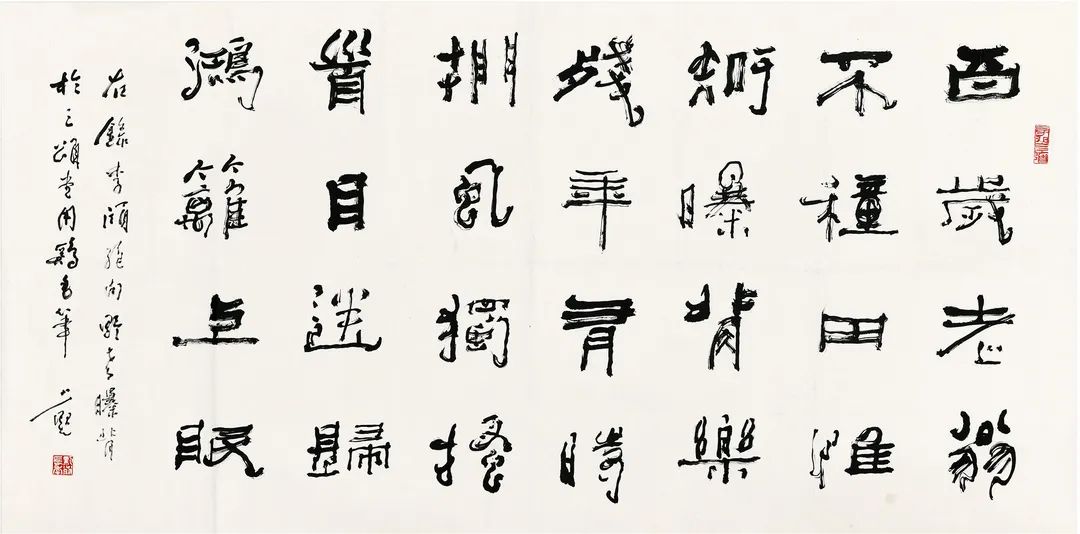 百歲老翁
不種田惟
知曝背樂
殘年有時
捫虱獨搔
首目送歸
鴻籬眠
右錄李頎絕句野老曝背
於三頌堂用鷄毛筆